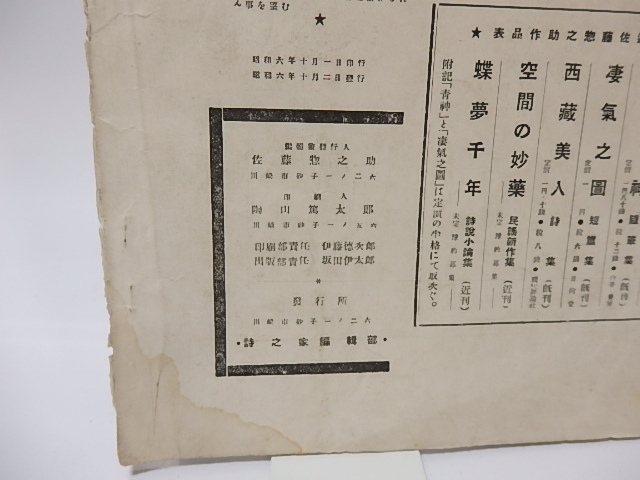 ん事を望む
★
昭和六年十月一日印行
昭和六年十月二日發行
編輯兼發行人
佐藤惣之助
川崎市砂子一ノ二六
印刷人
陶山篤太郎
川崎市砂子一ノ五六
印刷部責任 伊藤德次郎
出版部責任 坂田伊太郎
＊
發行所
川崎市砂子一ノ二六
・詩之家編輯部・
佐藤惣之助作品表★
凄氣之圖 短篇集(既刊)
西藏美人 詩集(既刊)
空間の妙藥 民謠新作集(近刊)
蝶夢千年 詩說小論集(近刊)
附記「青神」と「凄氣之圖」は定價の半格にて取次ぐ。